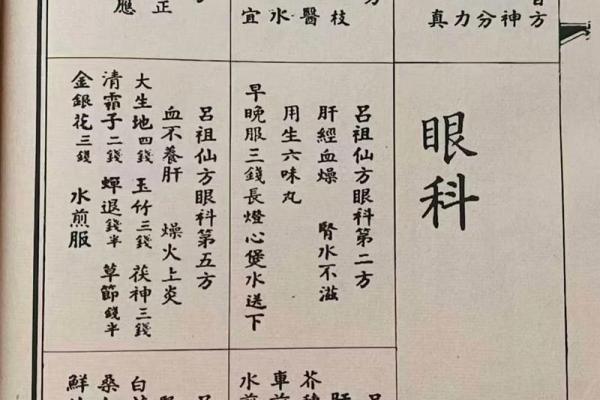 方
神
分
力
真
枝
醫
水
宜
正
應
眼科
呂祖仙方眼科第二方
肝經血燥 腎水不滋
用生六味丸
早晚服三錢長燈心煲水送下
呂祖仙方眼科第五方
血不養肝 燥火上炎
大生地四錢 玉竹三錢 茯神三錢
清霜子二錢 蟬退錢半 草節錢半
金銀花三錢 水煎服
呂
芥
車前
水煎
白
桑
鮮